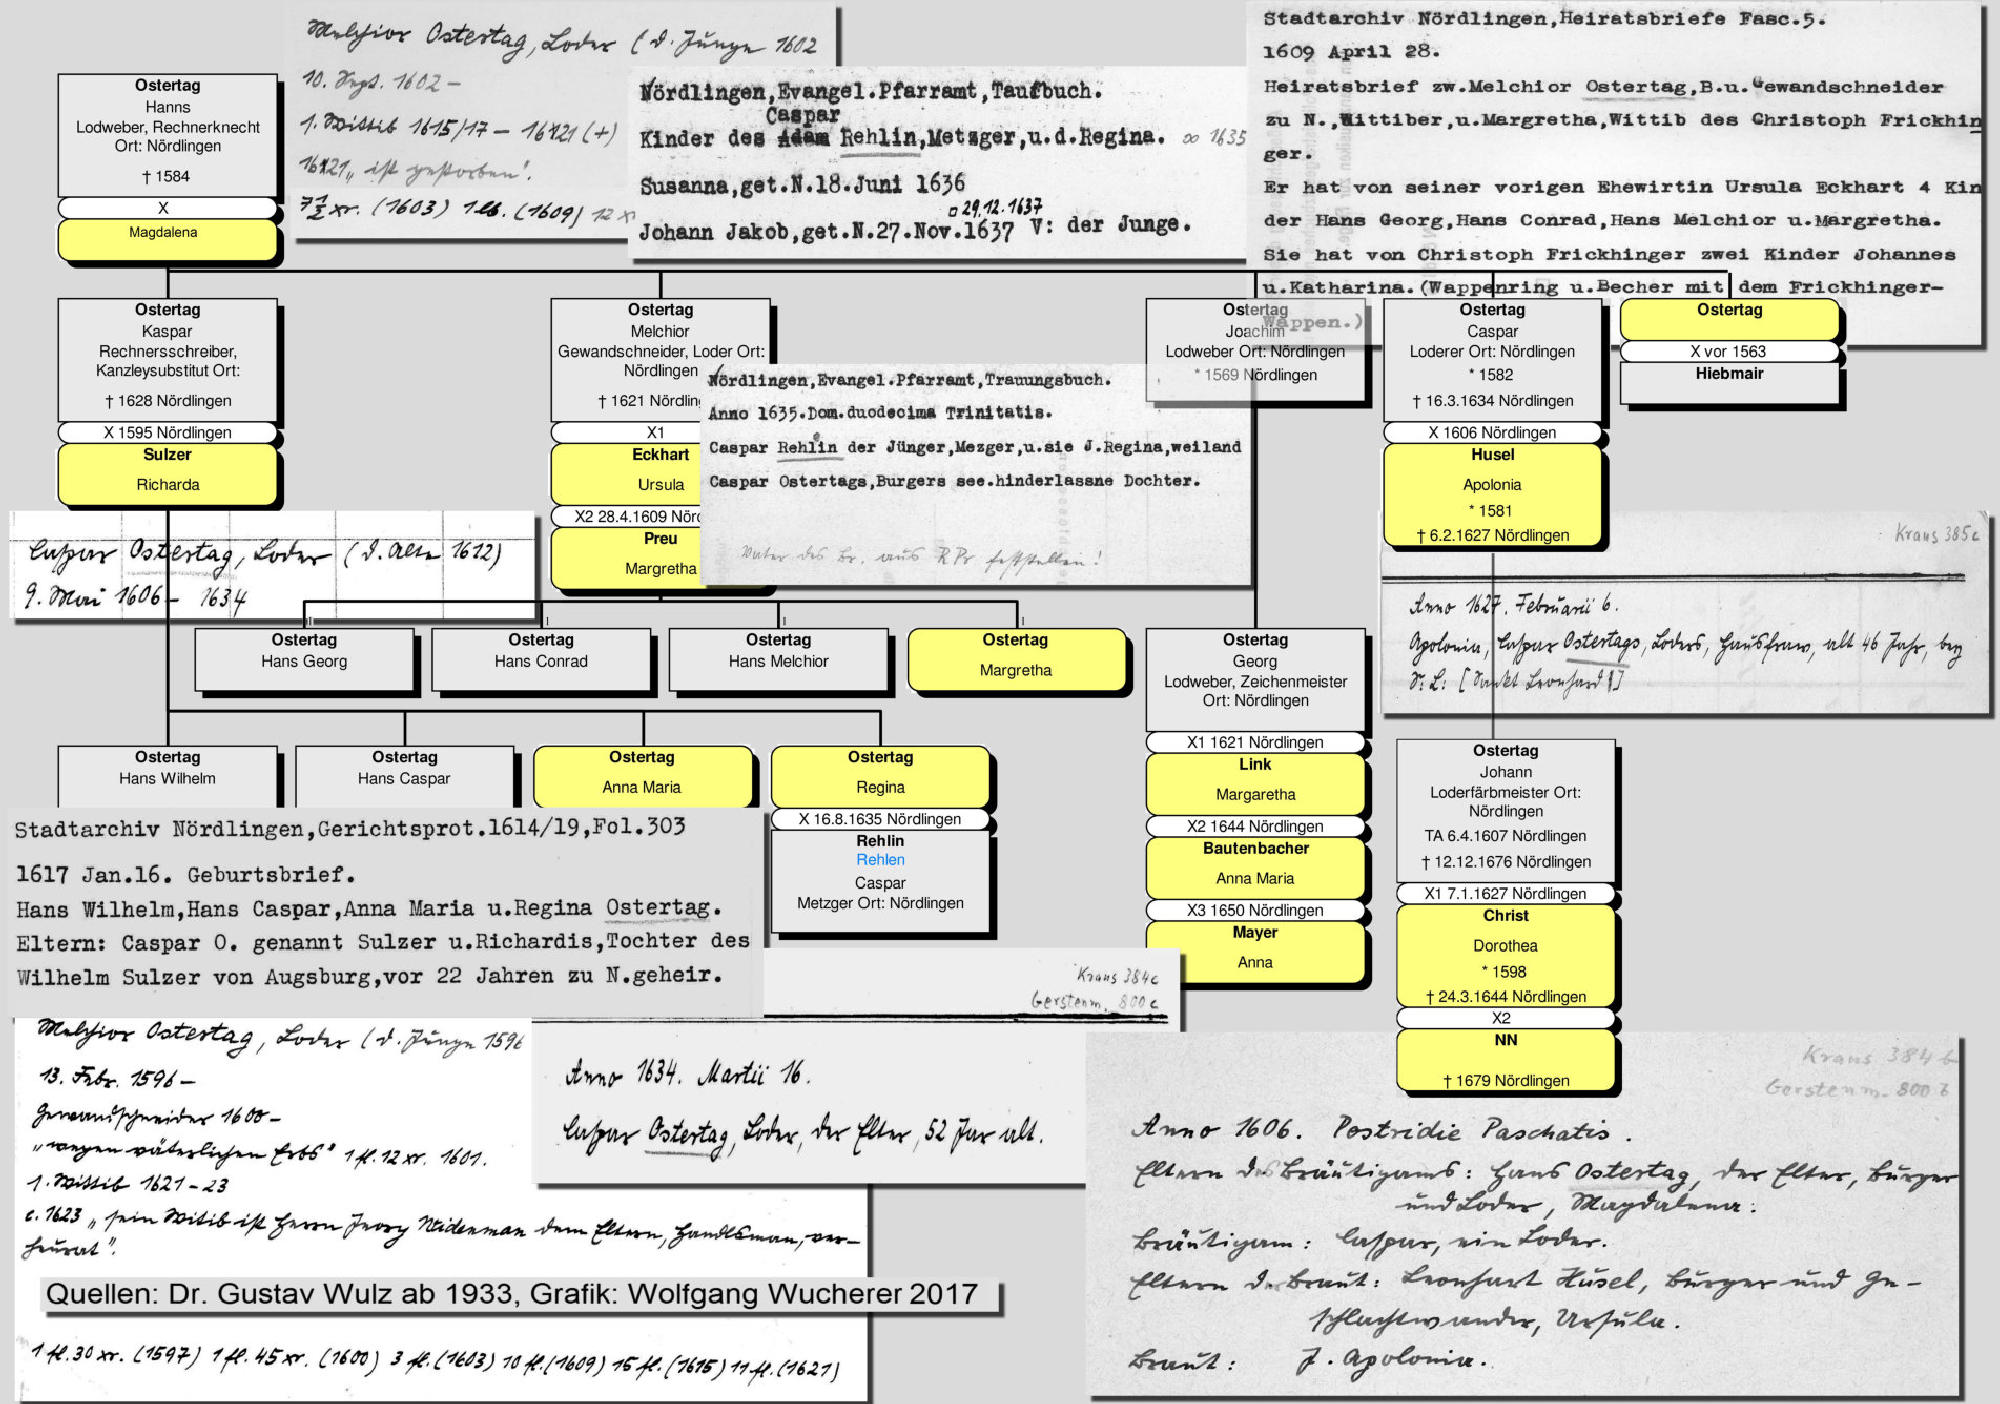 Melchior Ostertag, Loder (d. Junge 1602
10. Augs. 1602 –
1. Wittib 1615/17 – 1621 (+)
1621 „ ist gestorben!
(1603) 1 lb. (1609) 12 xr
Nördlingen,Evangel.Pfarramt,Taufbuch.
Caspar
Kinder des Adam Rehlin,Metzger,u.d.Regina. ∞ 1635
Susanna,get.N.18.Juni 1636
29.12.1637
Johann Jakob,get.N.27.Nov.1637 V: der Junge.
Stadtarchiv Nördlingen,Heiratsbriefe Fasc.5.
1609 April 28.
Heiratsbrief zw.Melchior Ostertag,B.u.Gewandschneider
zu N.,Wittiber,u.Margretha,Wittib des Christoph Frickhin
ger.
Er hat von seiner vorigen Ehewirtin Ursula Eckhart 4 Kin
der Hans Georg,Hans Conrad,Hans Melchior u.Margretha.
Sie hat von Christoph Frickhinger zwei Kinder Johannes
u.Katharina.(Wappenring u.Becher mit dem Frickhinger-
Wappen.)
Ostertag
Hanns
Lodweber, Rechnerknecht
Ort: Nördlingen
† 1584
X
Magdalena
Ostertag
Kaspar
Rechnersschreiber,
Kanzleysubstitut Ort:
† 1628 Nördlingen
X 1595 Nördlingen
Sulzer
Richarda
Ostertag
Melchior
Gewandschneider, Loder Ort:
Nördlingen
† 1621 Nördling
X1
Eckhart
Ursula
X2 28.4.1609 Nörd
Preu
Margretha
Ostertag
Joachim
Lodweber Ort: Nördlingen
* 1569 Nördlingen
Ostertag
Caspar
Loderer Ort: Nördlingen
* 1582
† 16.3.1634 Nördlingen
X 1606 Nördlingen
Husel
Apolonia
* 1581
† 6.2.1627 Nördlingen
Ostertag
X vor 1563
Hiebmair
Nördlingen,Evangel.Pfarramt,Trauungsbuch.
Anno 1635.Dom.duodecima Trinitatis.
Caspar Rehlin der Jünger,Mezger,u.sie J.Regina,weiland
Caspar Ostertags,Burgers see.hinderlassne Dochter.
Vater des Br. aus RPr feststellen!
Caspar Ostertag, Loder (d. Alte 1612)
9. Mai 1606 – 1634
Kraus 385c
Anno 1627. Februarii 6.
Apolonia, Caspar Ostertags, Loders, Hausfraw, alt 46 Jahr, bey
S: L: [Sankt Leonhard!]
Ostertag
Hans Georg
Ostertag
Hans Conrad
Ostertag
Hans Melchior
Ostertag
Margretha
Ostertag
Georg
Lodweber, Zeichenmeister
Ort: Nördlingen
X1 1621 Nördlingen
Link
Margaretha
X2 1644 Nördlingen
Bautenbacher
Anna Maria
X3 1650 Nördlingen
Mayer
Anna
Ostertag
Johann
Loderfärbmeister Ort:
Nördlingen
TA 6.4.1607 Nördlingen
† 12.12.1676 Nördlingen
X1 7.1.1627 Nördlingen
Christ
Dorothea
* 1598
† 24.3.1644 Nördlingen
X2
NN
† 1679 Nördlingen
Ostertag
Hans Wilhelm
Ostertag
Hans Caspar
Ostertag
Anna Maria
Ostertag
Regina
X 16.8.1635 Nördlingen
Rehlin
Rehlen
Caspar
Metzger Ort: Nördlingen
Stadtarchiv Nördlingen,Gerichtsprot.1614/19,Fol.303
1617 Jan.16. Geburtsbrief.
Hans Wilhelm,Hans Caspar,Anna Maria u.Regina Ostertag.
Eltern: Caspar O. genannt Sulzer u.Richardis,Tochter des
Wilhelm Sulzer von Augsburg,vor 22 Jahren zu N.geheir.
Melchior Ostertag, Loder (d. Junge 1596
13. Febr. 1596 –
Gewandschneider 1600 –
„wegen väterlichen Erbs" 1 fl. 12 xr. 1601.
1. Wittib 1621 – 23
c. 1623 „sein Witib ist Herrn Jeory Widenman dem Eltern, Handlsman, ver-
heurat".
1 fl. 30 xr. (1597) 1 fl. 45 xr. (1600) 3 fl. (1603) 10 fl. (1609) 15 fl. (1615) 11 fl. (1621)
Kraus 384c
Gerstenm. 800c
Anno 1634. Martii 16.
Caspar Ostertag, Loder, der Elter, 52 Jar alt.
Kraus 384 b
Gerstenm. 800 b
Anno 1606. Postridie Paschatis.
Eltern des Bräutigams: Hans Ostertag, der Elter, Burger
und Loder, Magdalena:
Bräutigam: Caspar, ein Loder.
Eltern d. Braut: Leonhart Husel, Burger und Ge-
schlachtwander, Ursula.
Braut: J. Apolonia.
Quellen: Dr. Gustav Wulz ab 1933, Grafik: Wolfgang Wucherer 2017